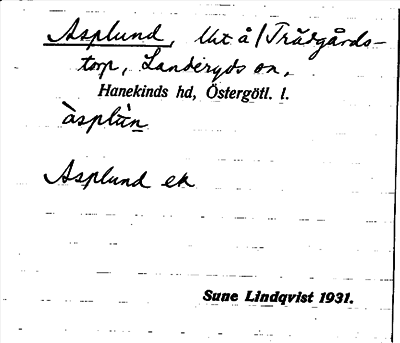 Asplund, lht å/Trädgårds-
torp, Landeryds sn,
Hanekinds hd, Östergötl. l.
àsplùn
Asplund ek
Sune Lindqvist 1931.